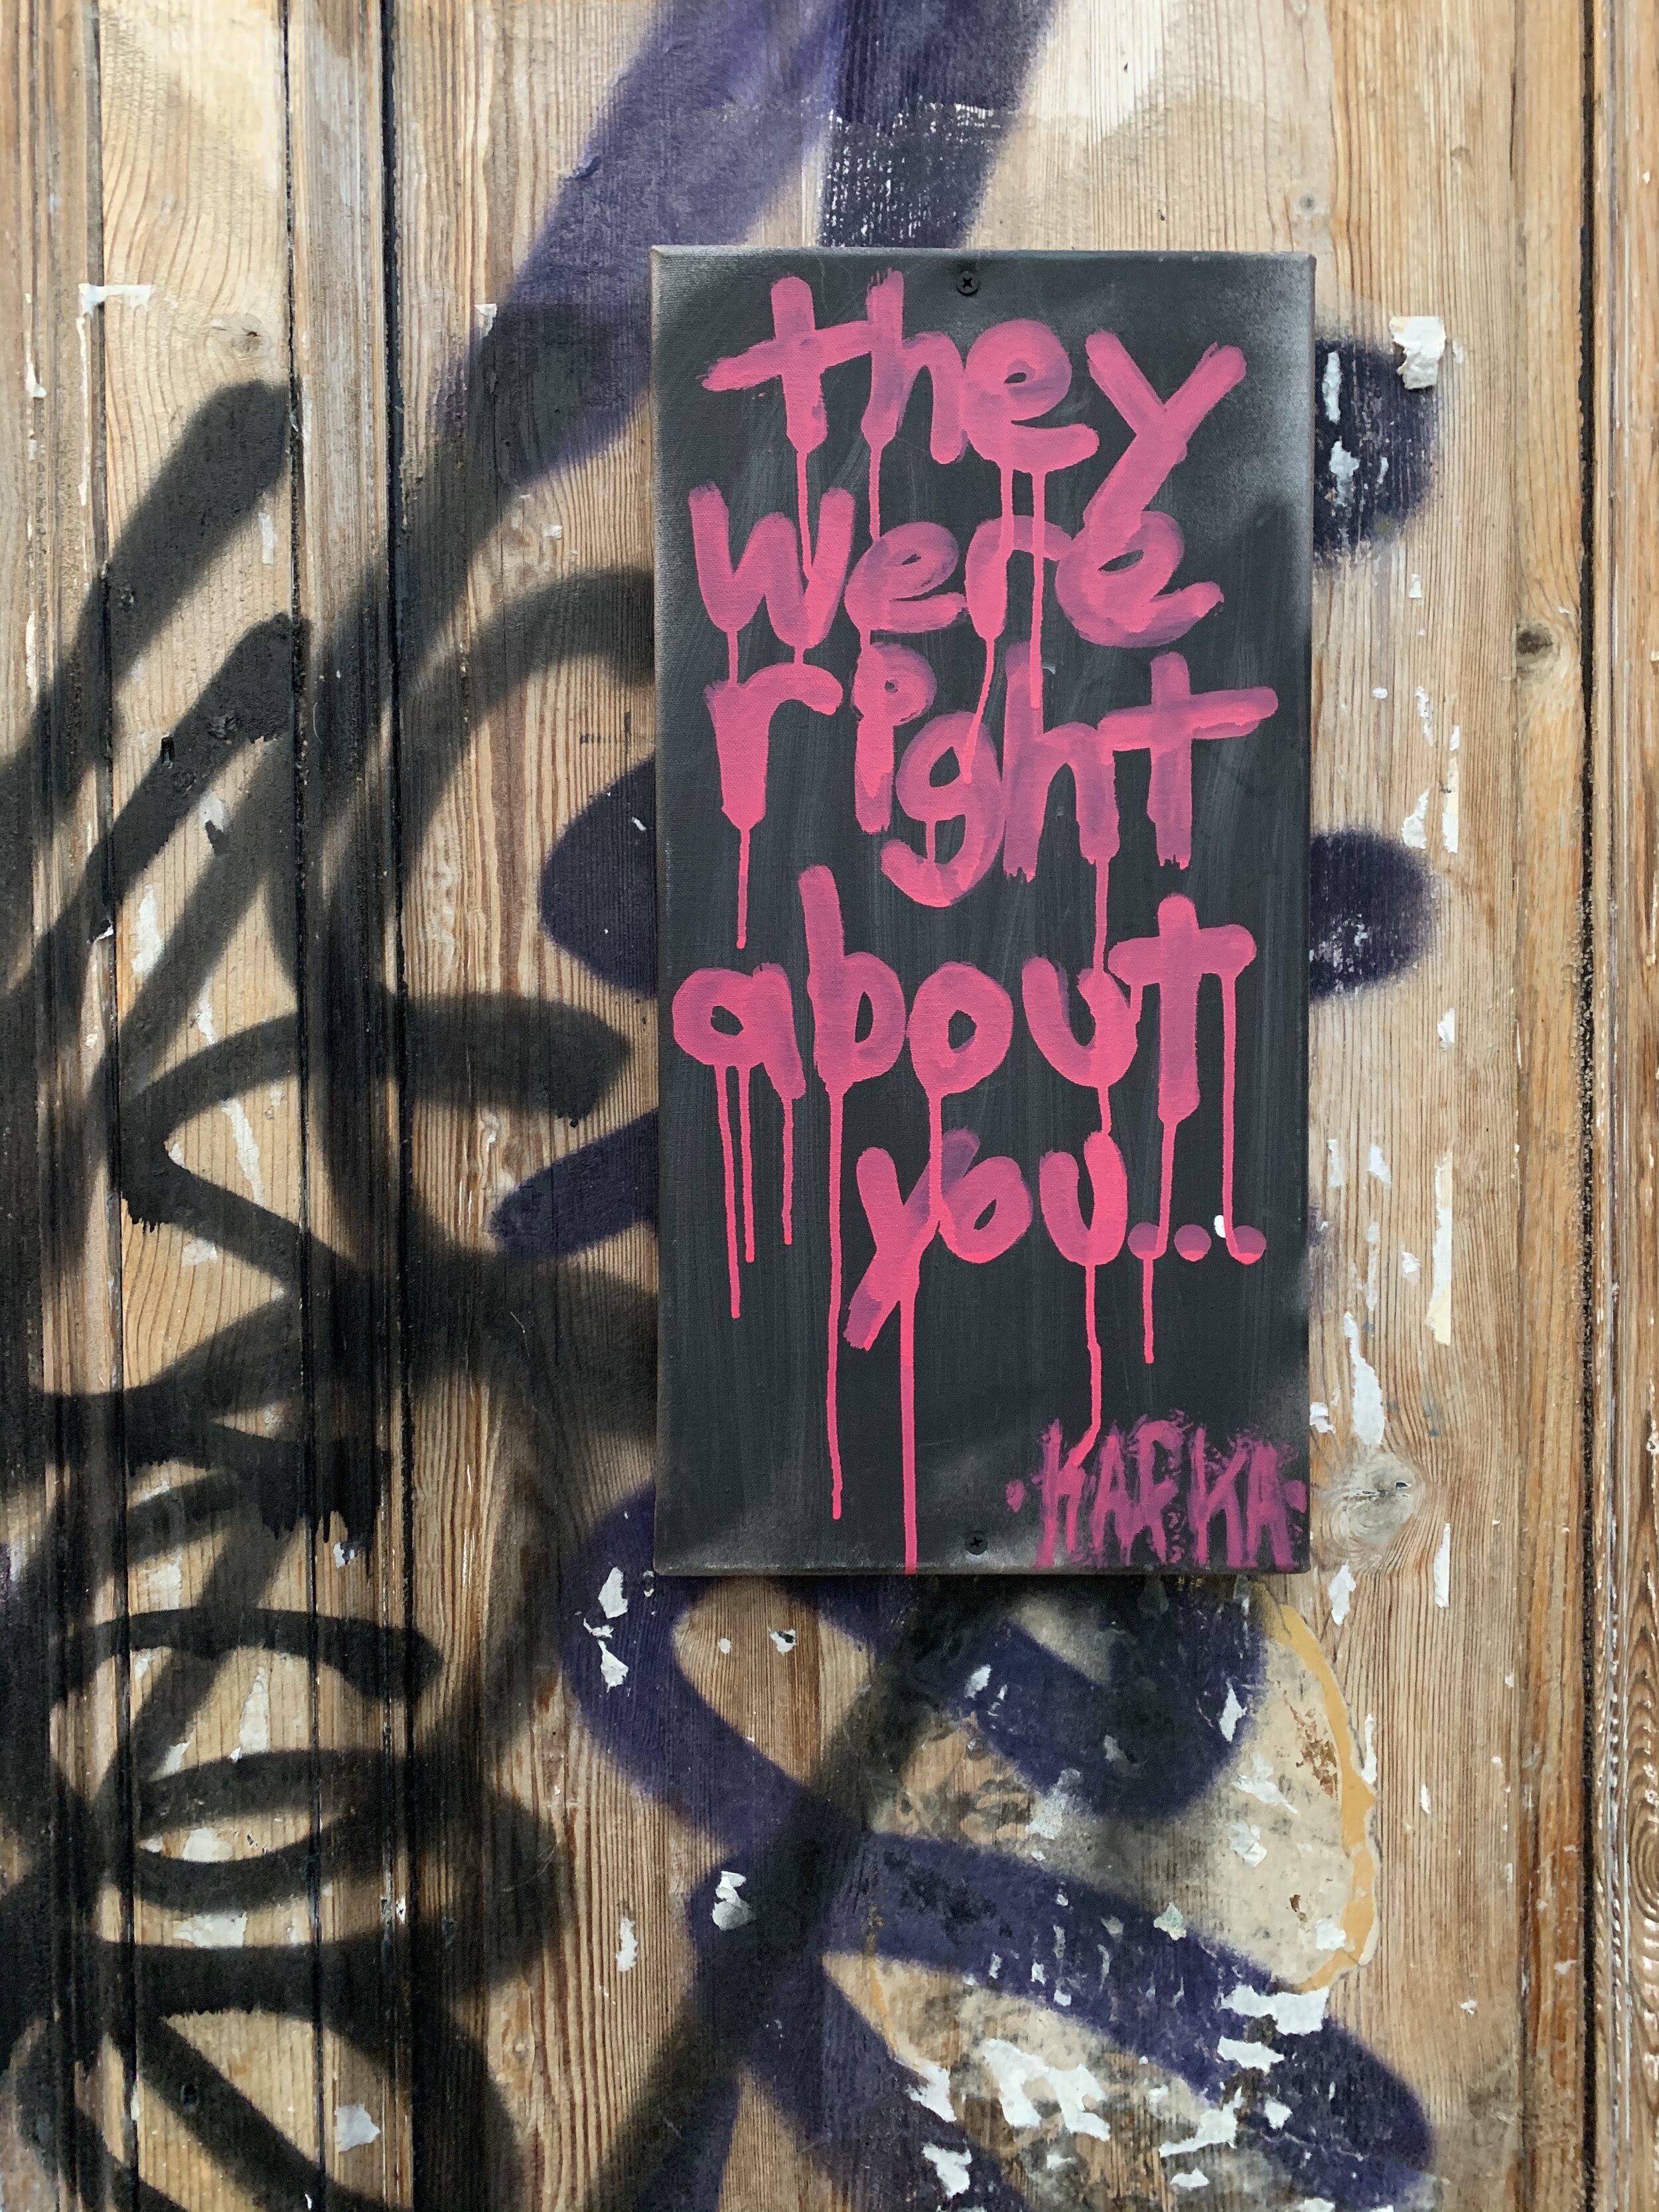 they
were
right
about
you...
·KAFKA·